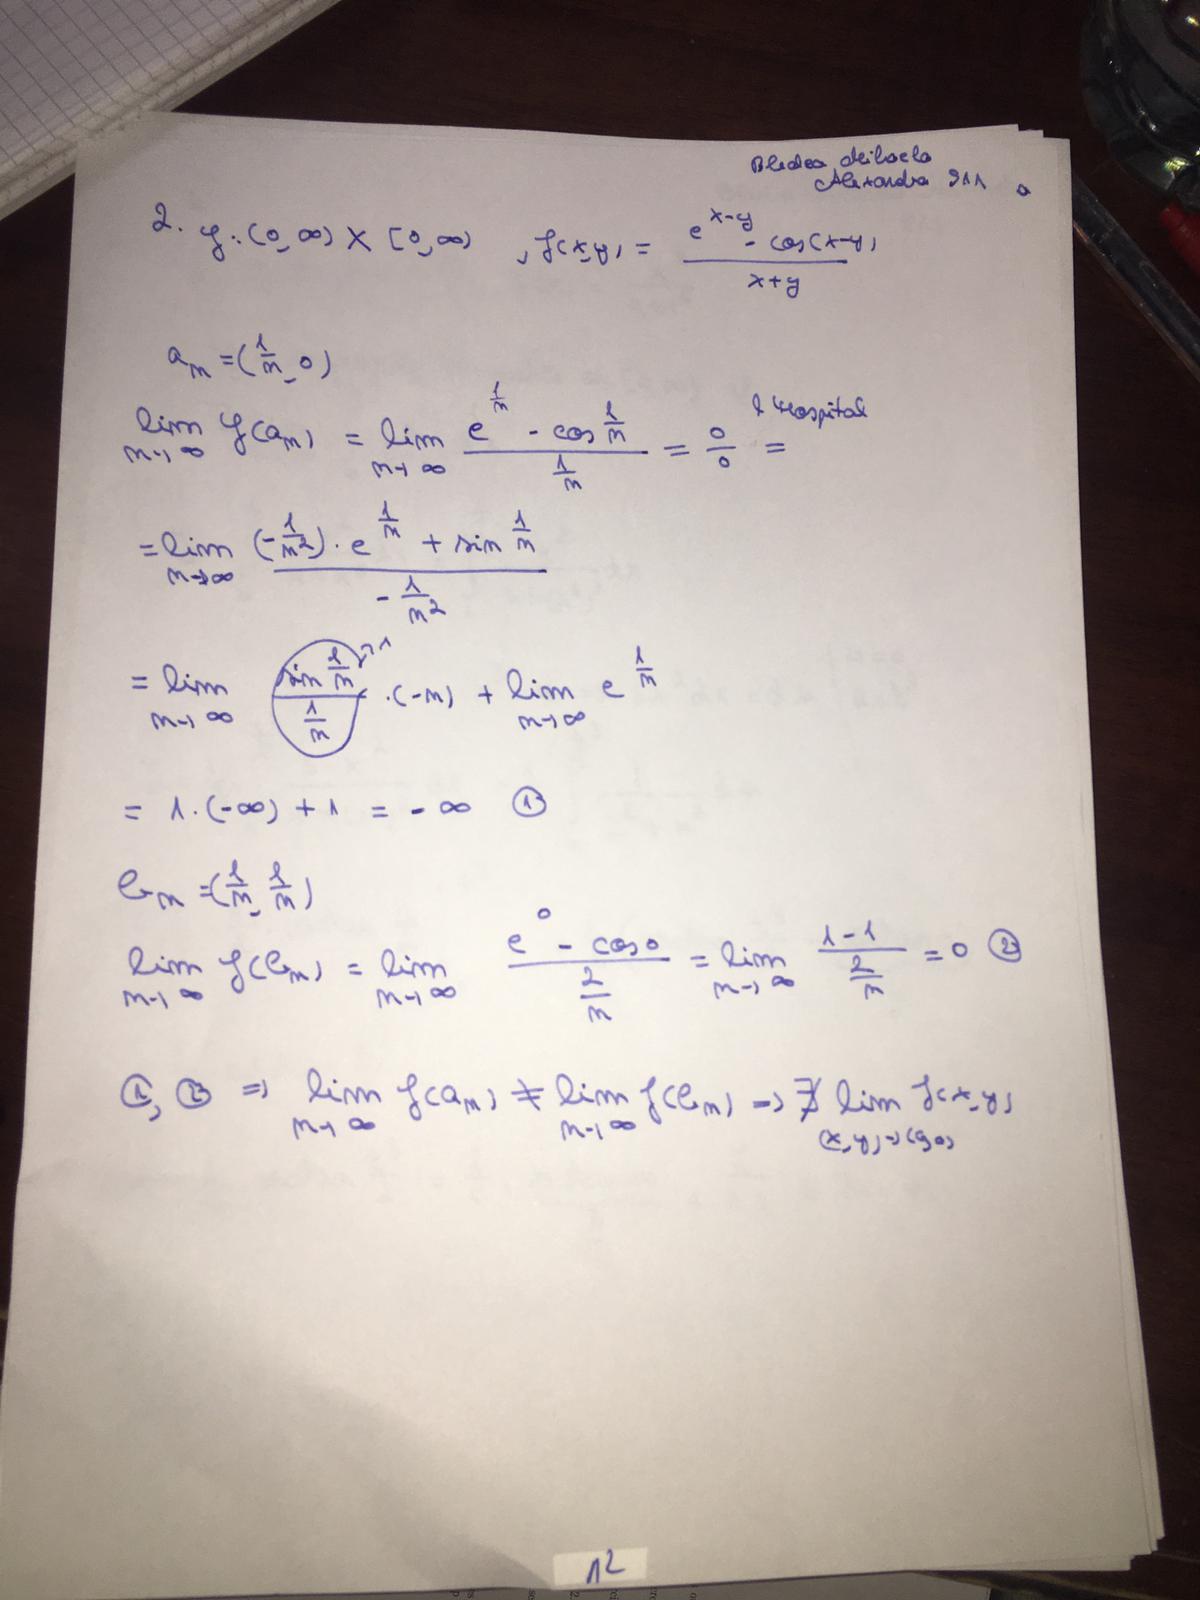 Alexandra 911
2. f: (0, ∞) × [0, ∞) , f(x,y) = \frac{e^{x-y} - cos(x-y)}{x+y}
a_n = (\frac{1}{n}, 0)
\lim_{n→∞} f(a_n) = \lim_{n→∞} \frac{e^{\frac{1}{n}} - cos \frac{1}{n}}{\frac{1}{n}} = \frac{0}{0} = l'Hospital
= \lim_{n→∞} \frac{(-\frac{1}{n^2}) · e^{\frac{1}{n}} + sin \frac{1}{n}}{-\frac{1}{n^2}}
= \lim_{n→∞} \frac{sin \frac{1}{n}}{\frac{1}{n}} →1 · (-n) + \lim_{n→∞} e^{\frac{1}{n}}
= 1 · (-∞) + 1 = -∞ ①
b_n = (\frac{1}{n}, \frac{1}{n})
\lim_{n→∞} f(b_n) = \lim_{n→∞} \frac{e^0 - cos 0}{\frac{2}{n}} = \lim_{n→∞} \frac{1-1}{\frac{2}{n}} = 0 ②
①, ② ⇒ \lim_{n→∞} f(a_n) ≠ \lim_{n→∞} f(b_n) ⇒ ∄ \lim_{(x,y)→(0,0)} f(x,y)
12